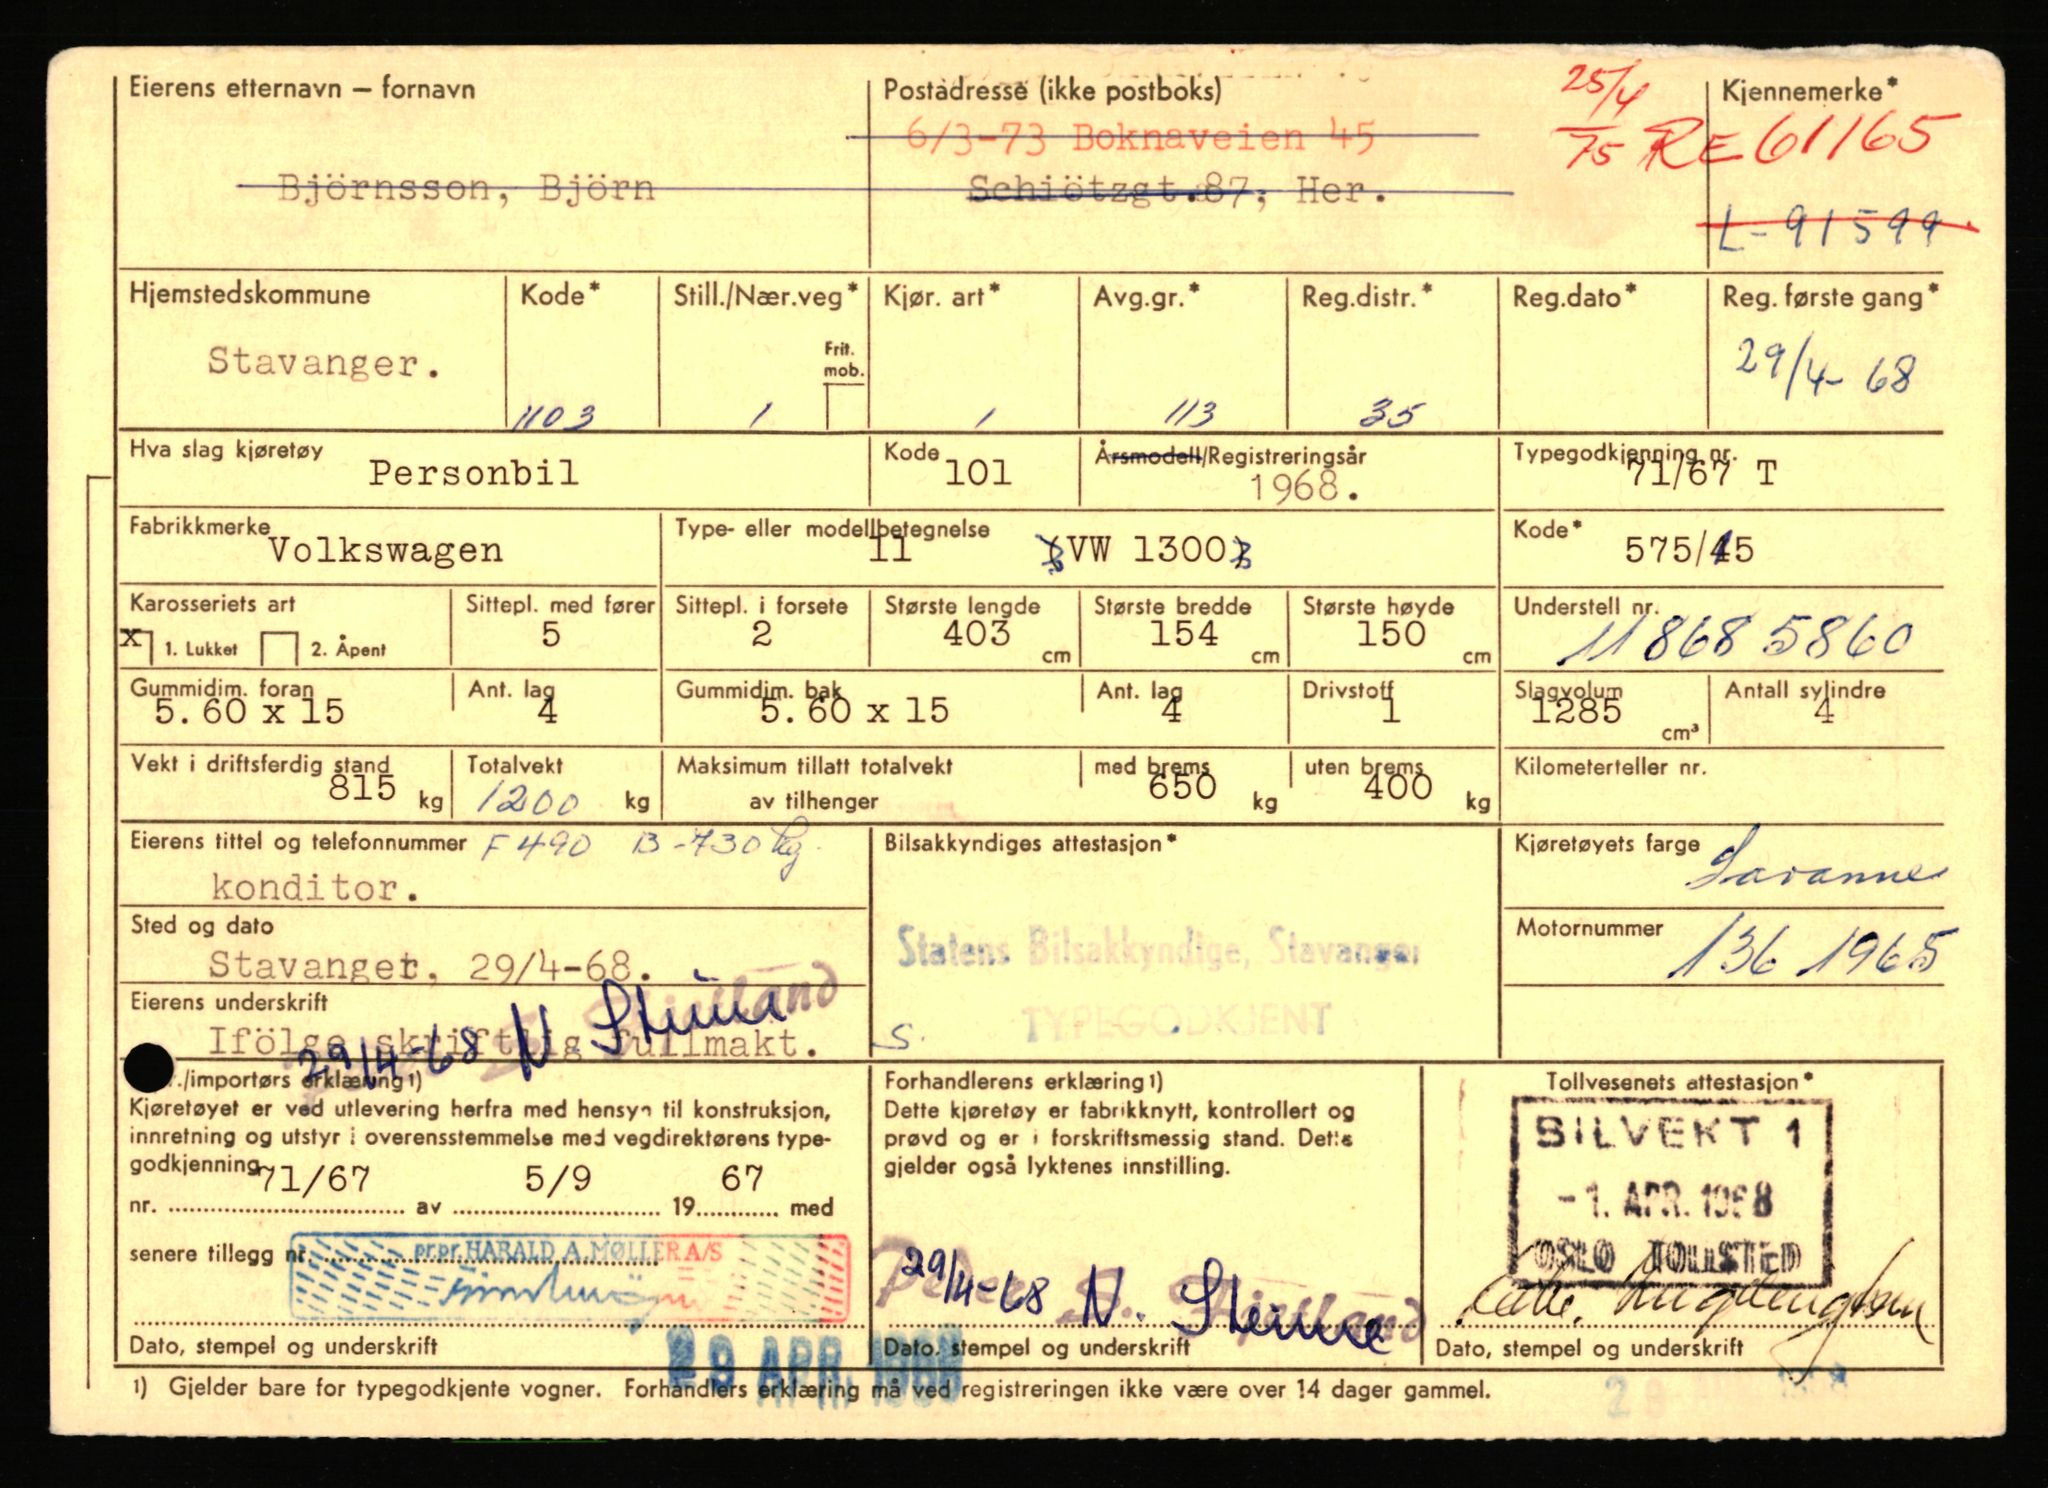 Eierens etternavn – fornavn
Postadresse (ikke postboks)
25/4
75
Kjennemerke*
6/3-73 Boknaveien 45
RE 61165
Björnsson, Björn
Schiötzgt.87, Her.
L-91599
Hjemstedskommune
Kode*
Still./Nær.veg*
Kjør. art*
Avg.gr.*
Reg.distr.*
Reg.dato*
Reg. første gang*
Stavanger.
Frit. mob.
29/4-68
1103
1
1
113
35
Hva slag kjøretøy
Personbil
Kode
101
Årsmodell/Registreringsår
1968.
Typegodkjenning nr.
71/67 T
Fabrikkmerke
Volkswagen
Type- eller modellbetegnelse
11 VW 1300
Kode*
575/15
Karosseriets art
Sittepl. med fører
Sittepl. i forsete
Største lengde
Største bredde
Største høyde
Understell nr.
x 1. Lukket 2. Åpent
5
2
403 cm
154 cm
150 cm
118685860
Gummidim. foran
Ant. lag
Gummidim. bak
Ant. lag
Drivstoff
Slagvolum
Antall sylindre
5.60 x 15
4
5.60 x 15
4
1
1285 cm³
4
Vekt i driftsferdig stand
Totalvekt
Maksimum tillatt totalvekt
med brems
uten brems
Kilometerteller nr.
815 kg
1200 kg
av tilhenger
650 kg
400 kg
Eierens tittel og telefonnummer F 490 B-730 kg.
Bilsakkyndiges attestasjon*
Kjøretøyets farge
konditor.
Savanne
Sted og dato
Motornummer
Stavanger, 29/4-68.
Statens Bilsakkyndige, Stavanger
136 1965
Eierens underskrift
Ifölge skriftlig fullmakt.
S. TYPEGODKJENT
29/4-68 N
./importørs erklæring 1)
Forhandlerens erklæring 1)
Tollvesenets attestasjon*
Kjøretøyet er ved utlevering herfra med hensyn til konstruksjon,
innretning og utstyr i overensstemmelse med vegdirektørens type-
godkjenning
nr. 71/67 av 5/9 19 67 med
senere tillegg nr.
pr.pr. HARALD A. MØLLER A/S
Dato, stempel og underskrift
Dette kjøretøy er fabrikknytt, kontrollert og
prøvd og er i forskriftsmessig stand. Dette
gjelder også lyktenes innstilling.
29/4-68 N.
Dato, stempel og underskrift
BILVEKT 1
-1. APR. 1968
OSLO TOLLSTED
Dato, stempel og underskrift
29 APR. 1968
1) Gjelder bare for typegodkjente vogner. Forhandlers erklæring må ved registreringen ikke være over 14 dager gammel.